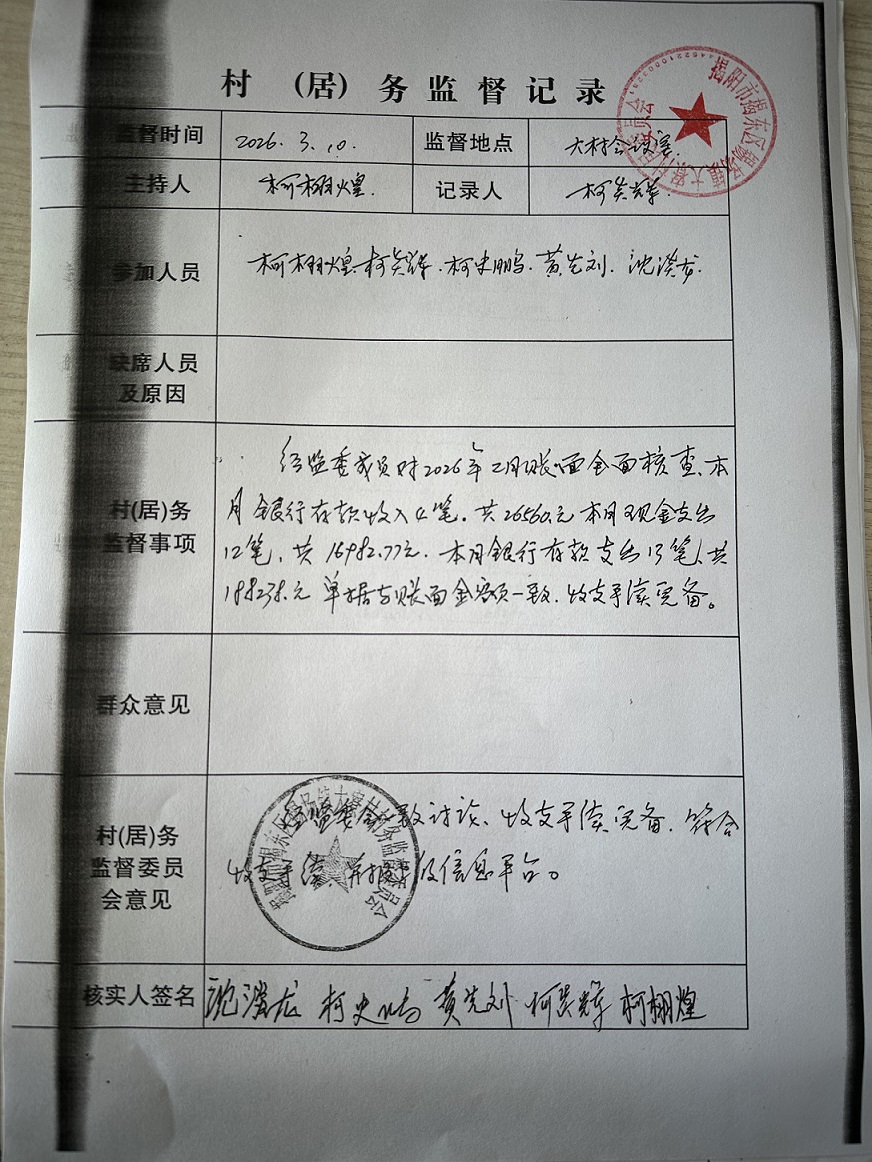 村 （居） 务 监 督 记 录
监督时间 2026. 3. 10. 监督地点 大村会议室
主持人 柯栩煌. 记录人 柯英辉.
参加人员 柯栩煌. 柯英辉. 柯史鹏. 黄先刘. 沈滨龙.
缺席人员
及原因
村(居)务
监督事项
经监委成员对2026年二月账面全面核查、本
月银行存款收入4笔. 共26560元 本月现金支出
12笔. 共16982.77元. 本月银行存款支出13笔、共
188238.元 单据与账面金额一致. 收支手续完备。
群众意见
村(居)务
监督委员
会意见
经监委会一致讨论、收支手续完备. 符合
收支手续、并报 信息平台。
核实人签名 沈滨龙 柯史鹏 黄先刘 柯英辉 柯栩煌
揭阳市揭东区
村务监督委员会